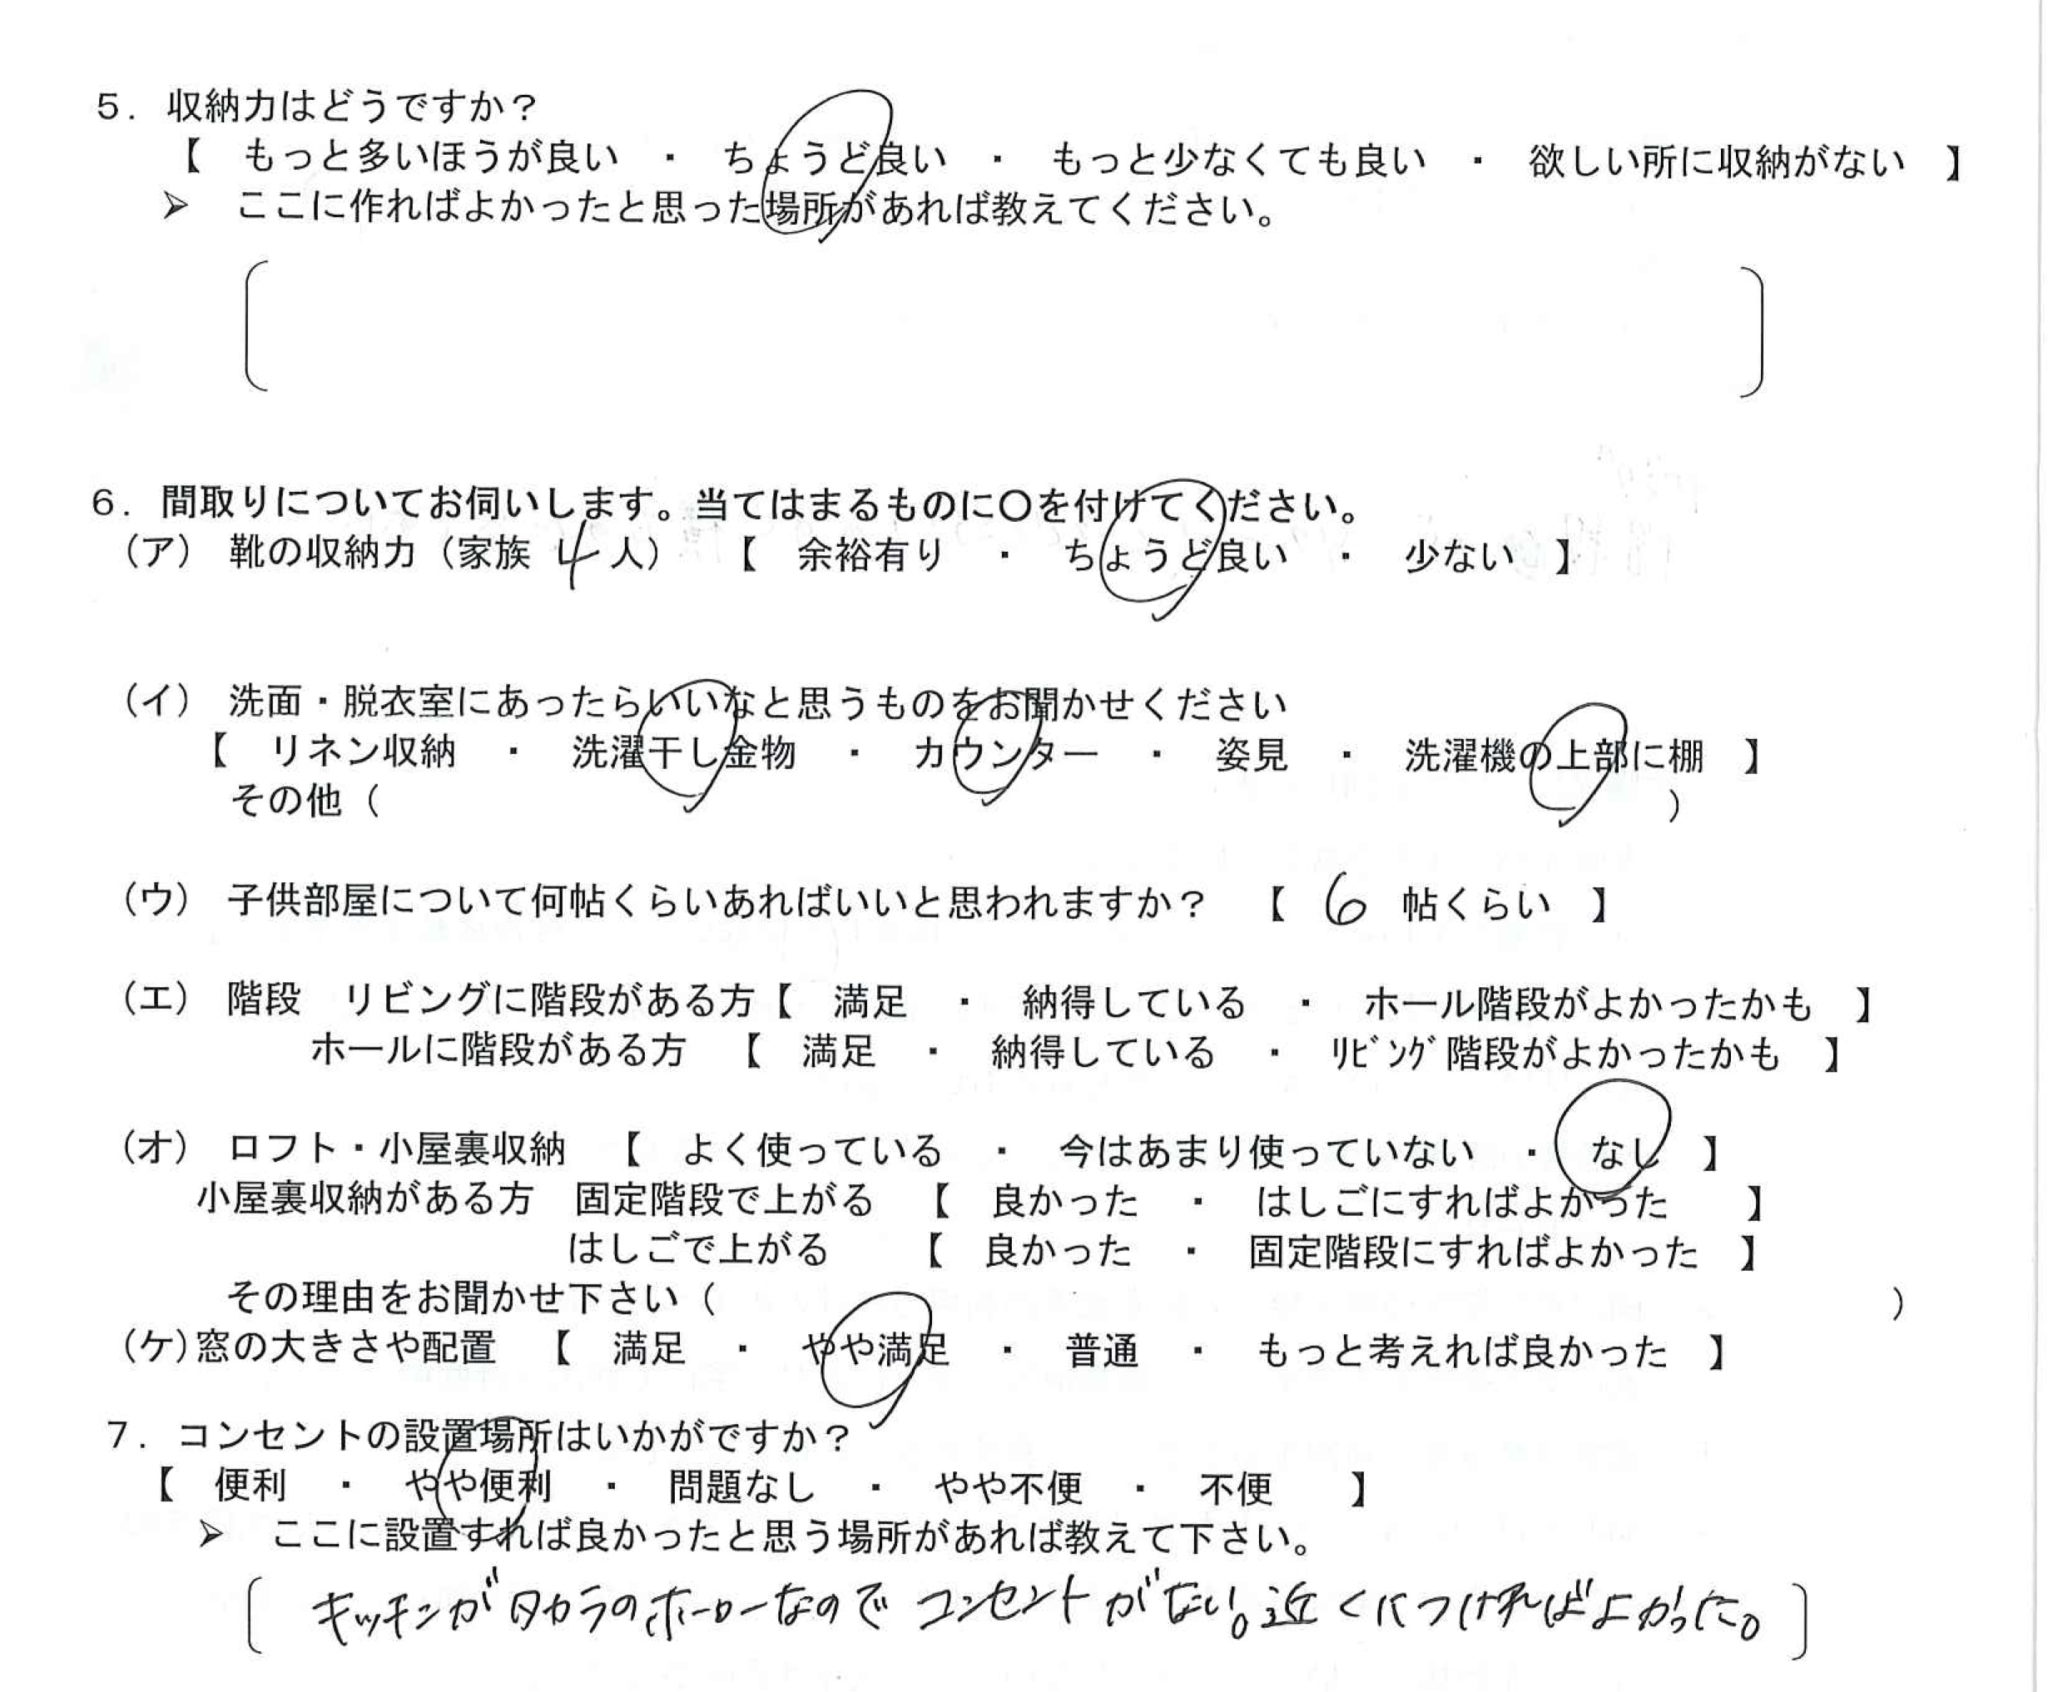 ５．収納力はどうですか？
【　もっと多いほうが良い　・　ちょうど良い　・　もっと少なくても良い　・　欲しい所に収納がない　】
➢　ここに作ればよかったと思った場所があれば教えてください。
６．間取りについてお伺いします。当てはまるものに〇を付けてください。
（ア）　靴の収納力（家族　4　人）　【　余裕有り　・　ちょうど良い　・　少ない　】
（イ）　洗面・脱衣室にあったらいいなと思うものをお聞かせください
【　リネン収納　・　洗濯干し金物　・　カウンター　・　姿見　・　洗濯機の上部に棚　】
その他（　　　　　）
（ウ）　子供部屋について何帖くらいあればいいと思われますか？　【　6　帖くらい　】
（エ）　階段　リビングに階段がある方【　満足　・　納得している　・　ホール階段がよかったかも　】
ホールに階段がある方　【　満足　・　納得している　・　ﾘﾋﾞﾝｸﾞ階段がよかったかも　】
（オ）　ロフト・小屋裏収納　【　よく使っている　・　今はあまり使っていない　・　なし　】
小屋裏収納がある方　固定階段で上がる　【　良かった　・　はしごにすればよかった　】
はしごで上がる　【　良かった　・　固定階段にすればよかった　】
その理由をお聞かせ下さい（　　　　　）
（ケ）窓の大きさや配置　【　満足　・　やや満足　・　普通　・　もっと考えれば良かった　】
７．コンセントの設置場所はいかがですか？
【　便利　・　やや便利　・　問題なし　・　やや不便　・　不便　】
➢　ここに設置すれば良かったと思う場所があれば教えて下さい。
キッチンがタカラのホーローなのでコンセントがない。近くにつければよかった。